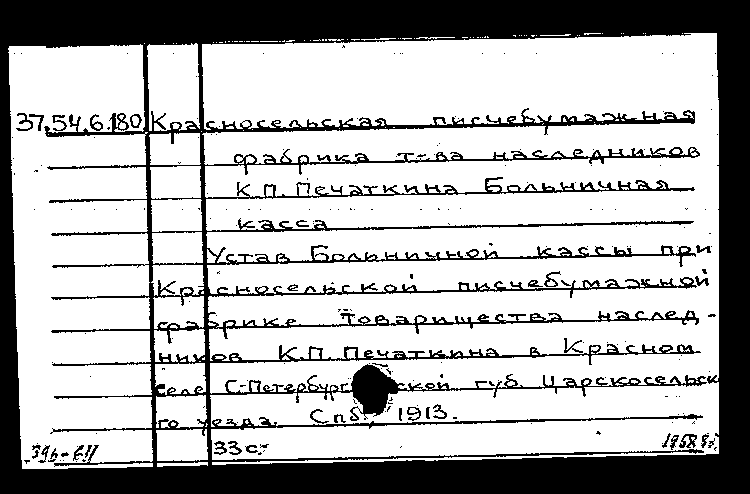 37.54.6.180 Красносельская писчебумажная
фабрика т-ва наследников
К.П. Печаткина Больничная
касса
Устав Больничной кассы при
Красносельской писчебумажной
фабрике товарищества наслед-
ников К.П. Печаткина в Красном
селе С.-Петербург ской губ. Царскосельско
го уезда. Спб, 1913.
33 с.